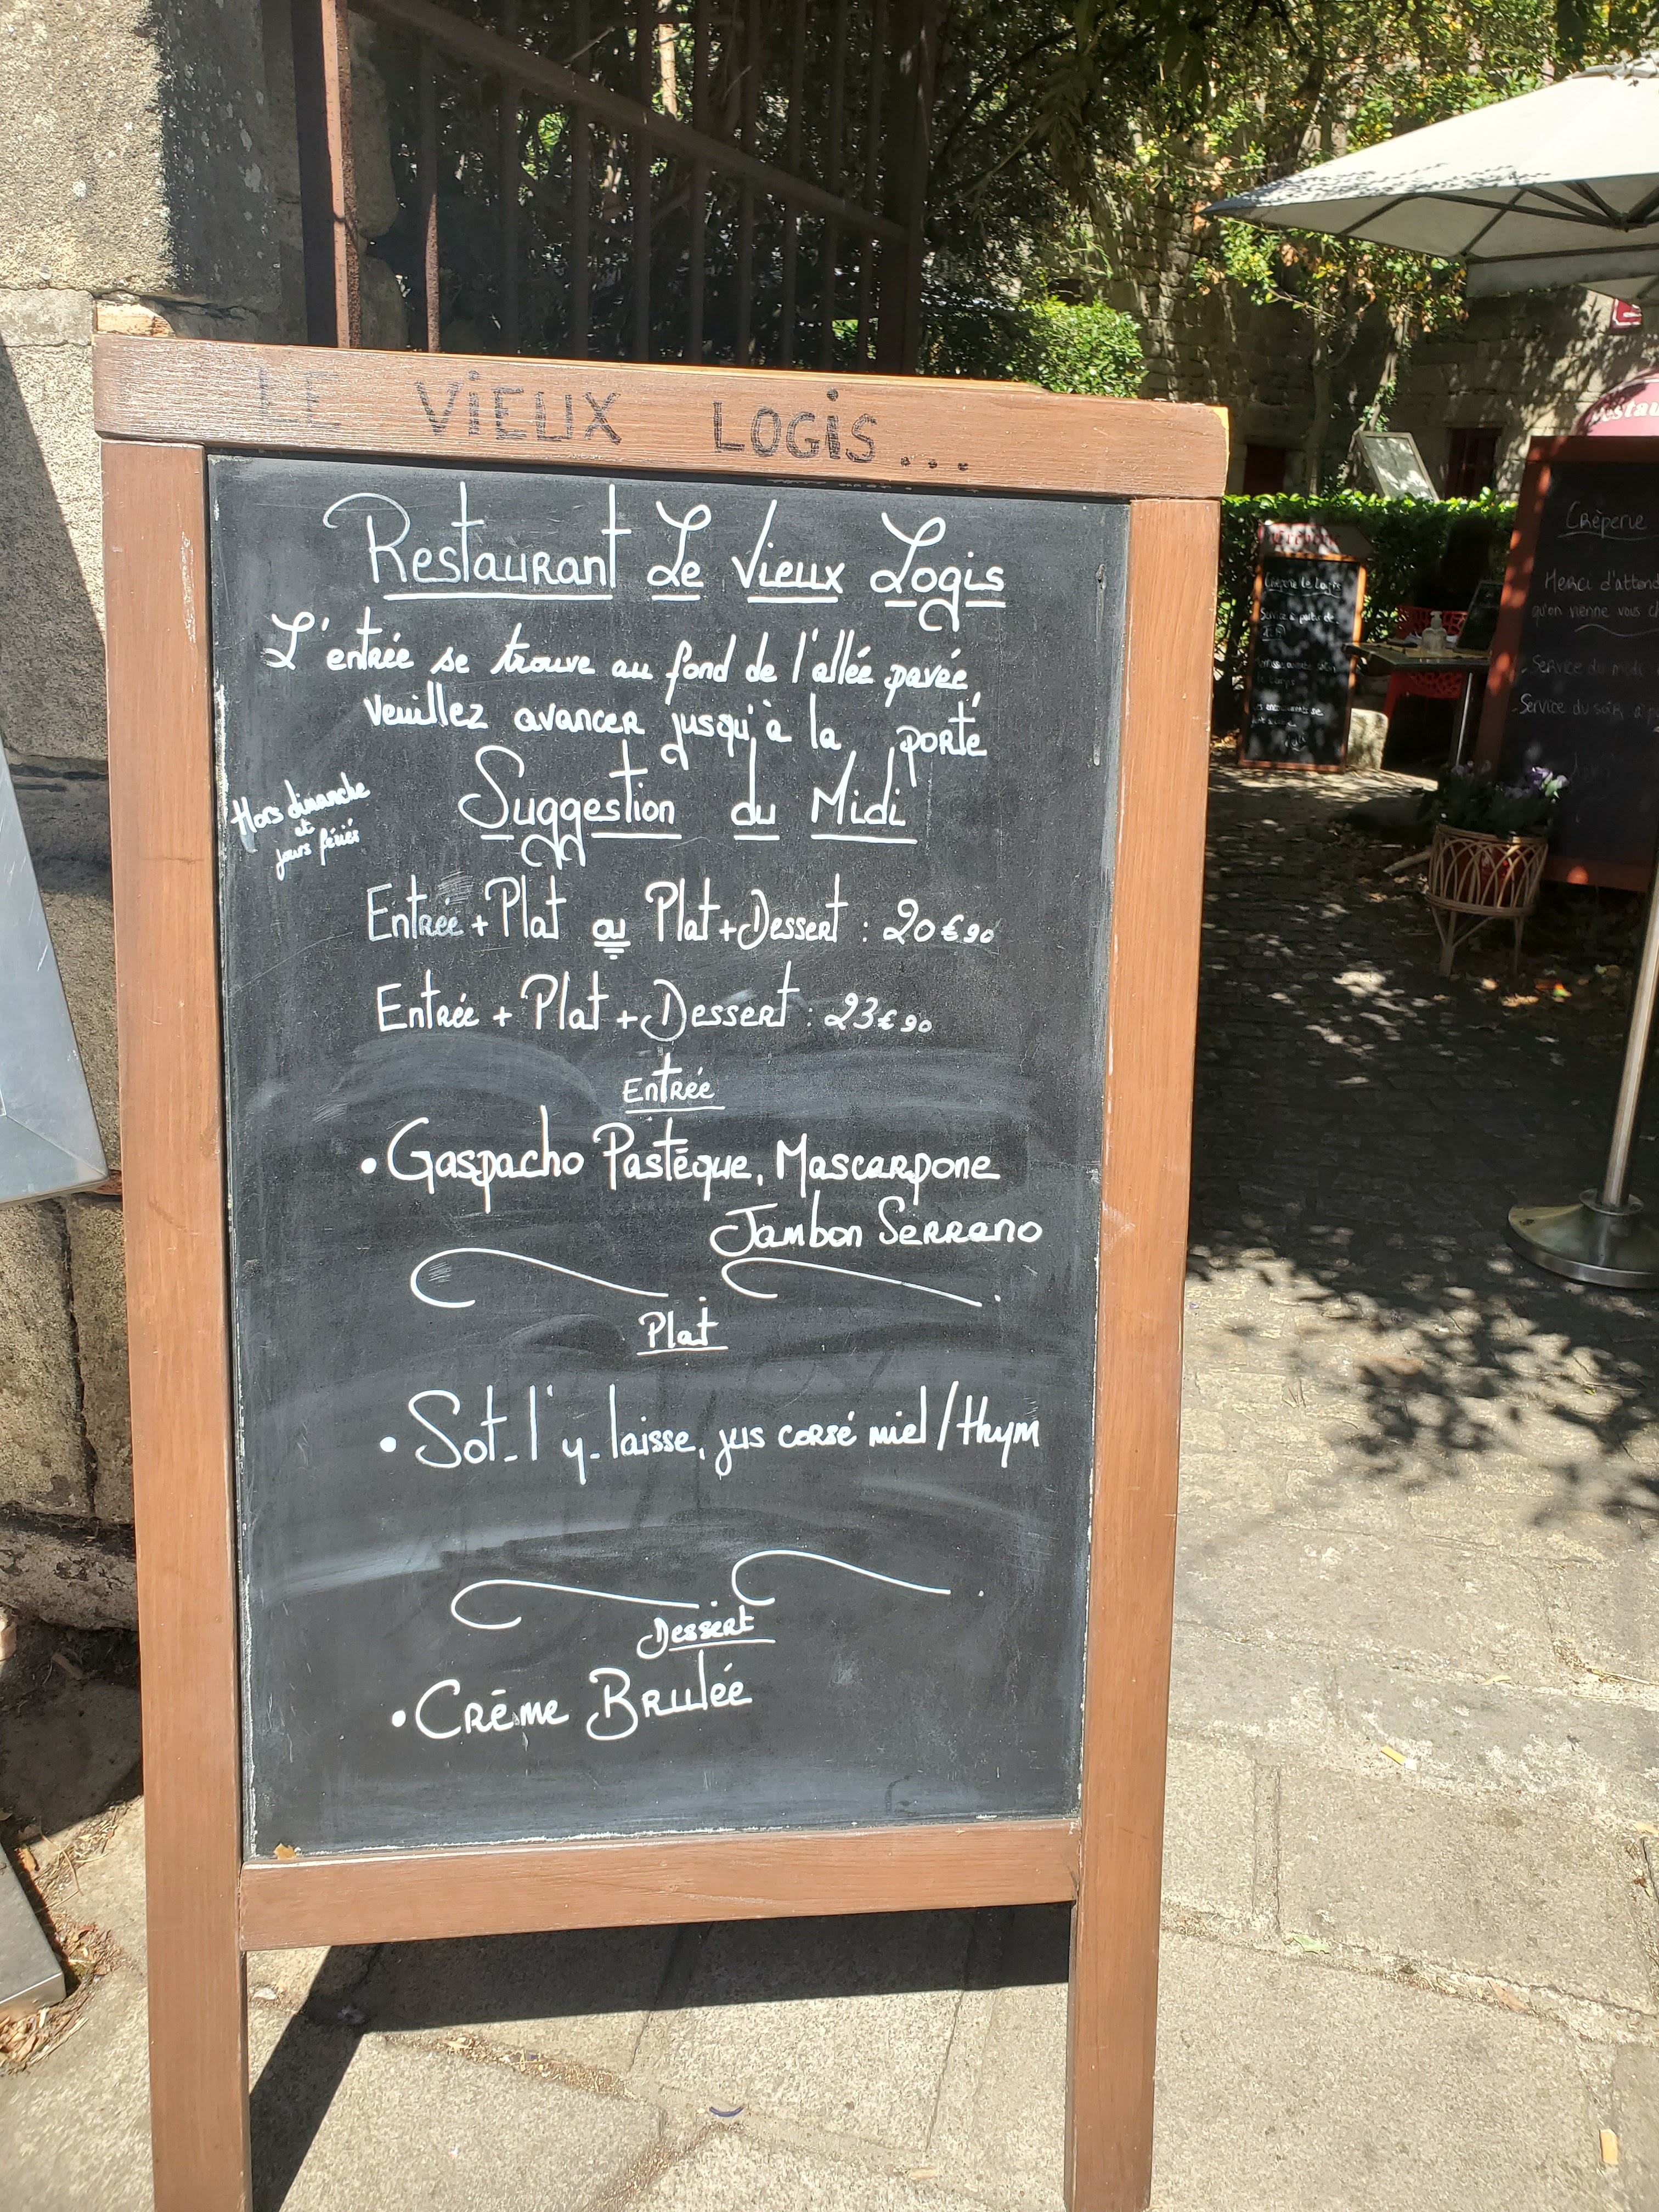 LE VIEUX LOGIS...
Restaurant Le Vieux Logis
L'entrée se trouve au fond de l'allée pavée,
veuillez avancer jusqu'à la porte
Hors dimanche
et
jours fériés
Suggestion du Midi
Entrée + Plat ou Plat + Dessert : 20€90
Entrée + Plat + Dessert : 23€90
Entrée
• Gaspacho Pastèque, Mascarpone
Jambon Serrano
Plat
• Sot-l'y-laisse, jus corsé miel/thym
Dessert
• Crème Brulée
Restau
Crêperie
Merci d'attend
qu'on vienne vous c
- Service du midi
- Service du soir, à p
Service à partir de